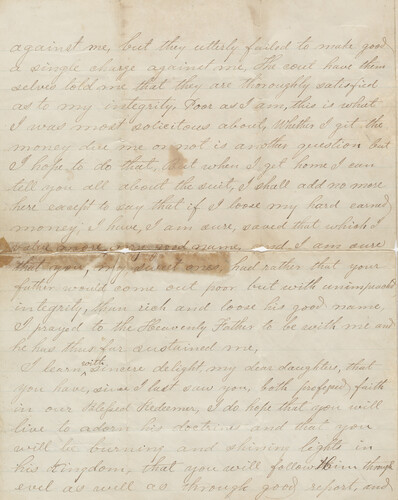 against me, but they utterly failed to make good
a single charge against me. The court have them
selves told me that they are thoroughly satisfied
as to my integrity. Poor as I am, this is what
I was most solicitous about. Whether I get the
money due me or not is another question but
I hope to do that. But when I get home I can
tell you all about the suit. I shall add no more
here except to say that if I loose my hard earned
money, I have, I am sure, saved that which I
value more my good name, and I am sure
that you, my sweet ones, had rather that your
father would come out poor but with unimpaired
integrity, than rich and loose his good name.
I prayed to the Heavenly Father to be with me and
he has thus far sustained me.
I learn with sincere delight, my dear daughters, that
you have, since I last saw you, both professed faith
in our blessed Redeemer. I do hope that you will
live to adorn his doctrines and that you
will be burning and shining lights in
his kingdom, that you will follow Him through
evel as well as through good report, and